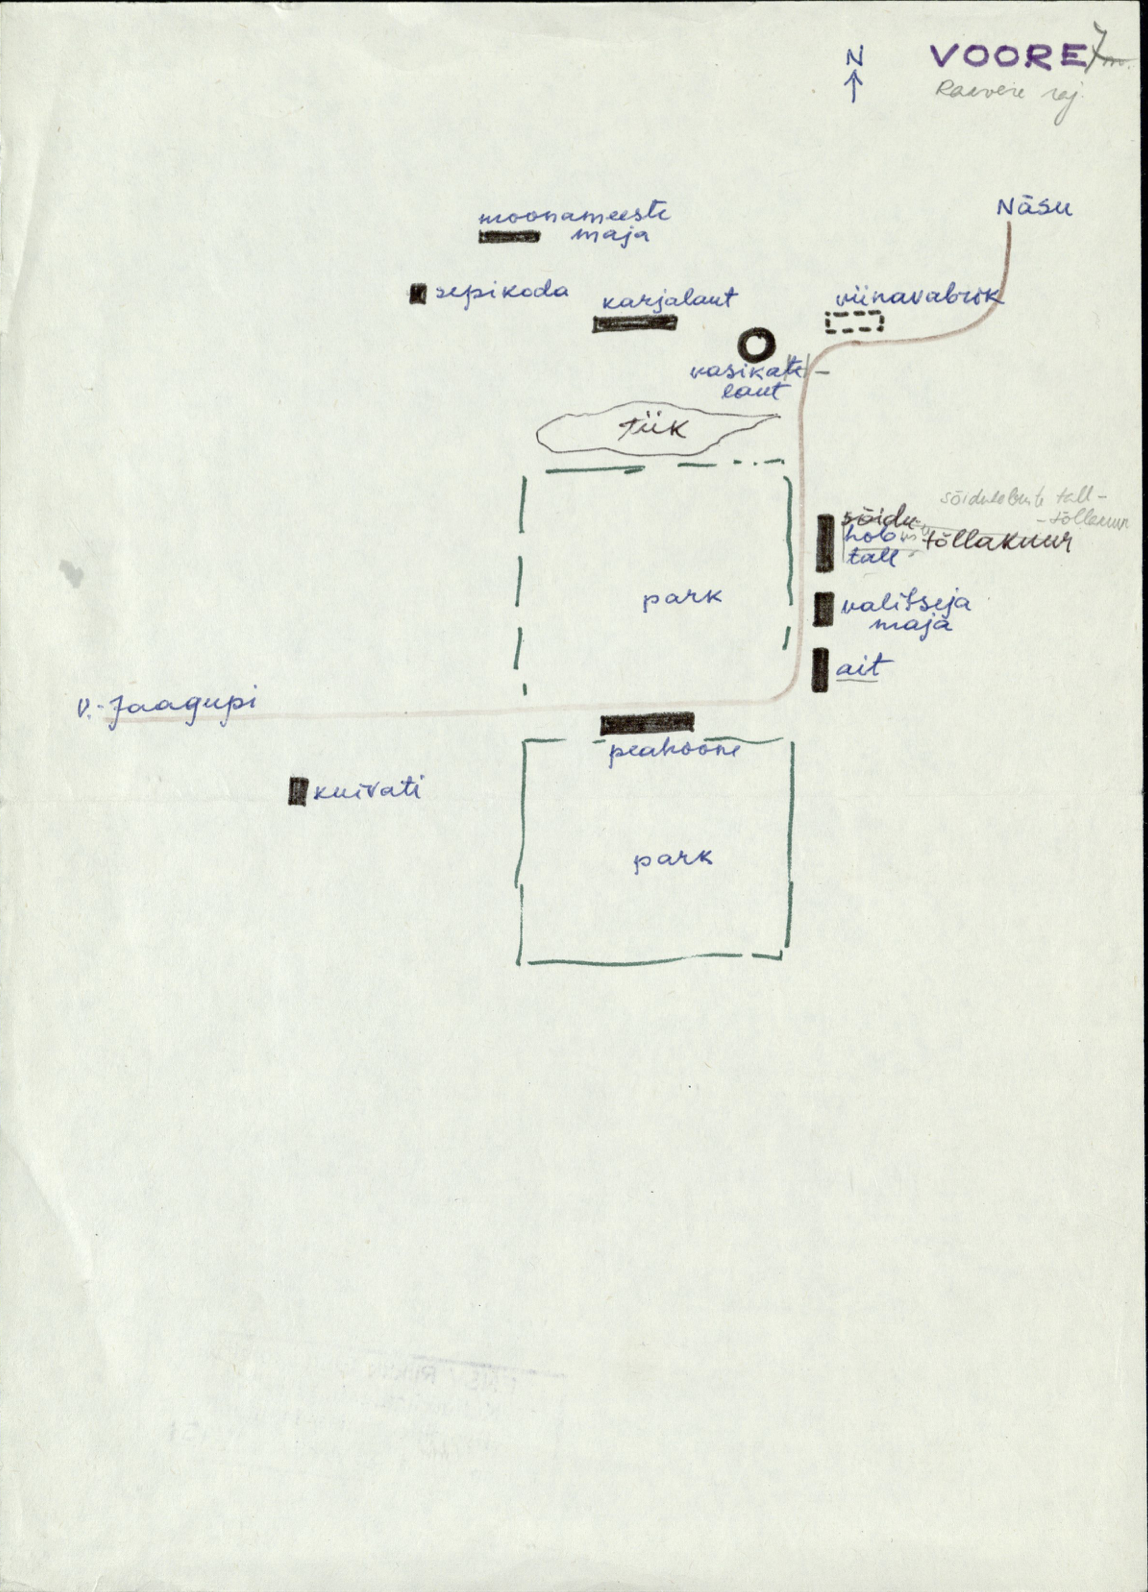 N
VOORE
7
Raavere raj.
Näsu
moonameeste
maja
sepikoda
karjalaut
viinavabrik
vasikate-
laut
Tiik
sõiduhobuste tall-
-tõllakuur
sõidu
hobus
tall
tõllakuur
park
valitseja
maja
ait
V.-Jaagupi
peahoone
kuivati
park